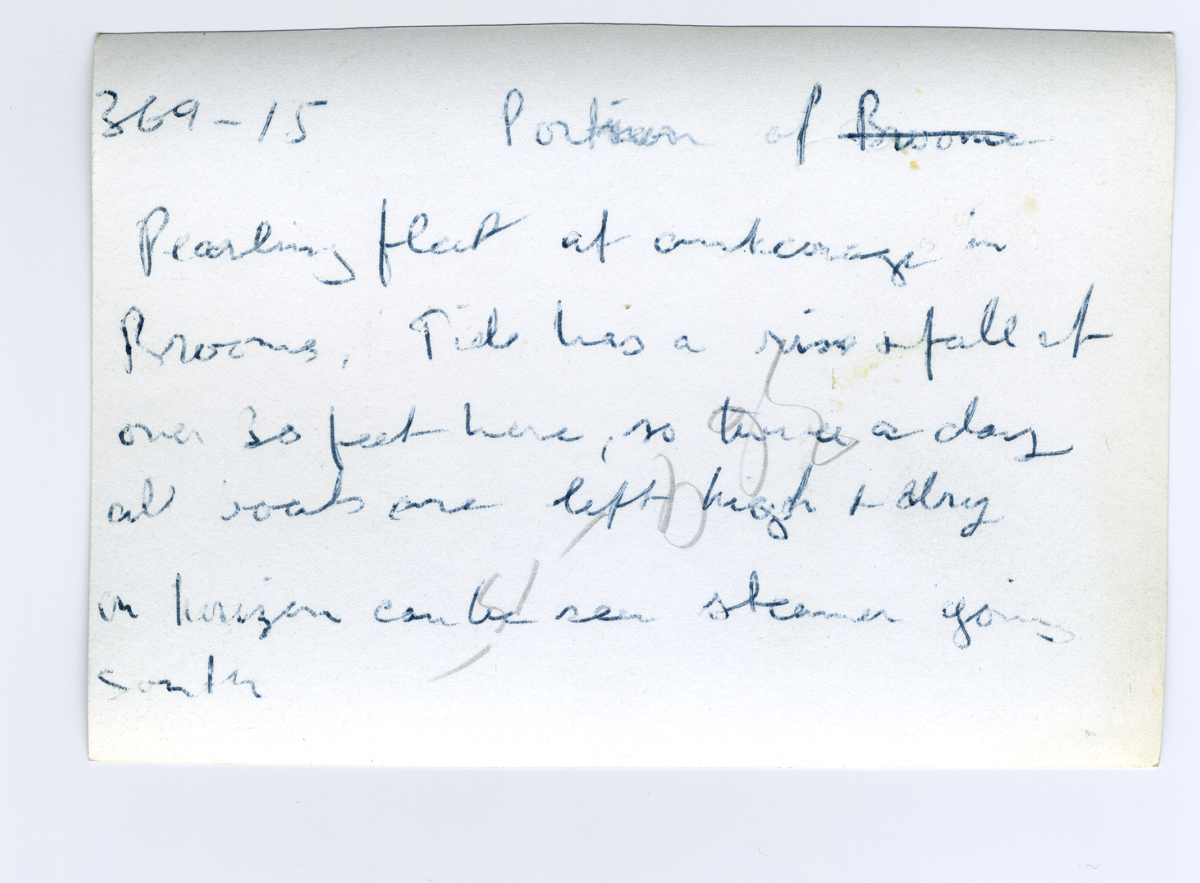 369-15 Portion of Broome
Pearling fleet at anchorage in
Broome. Tide has a rise + fall of
over 30 feet here, so twice a day
all boats are left high + dry
on horizon can be seen steamer going
south